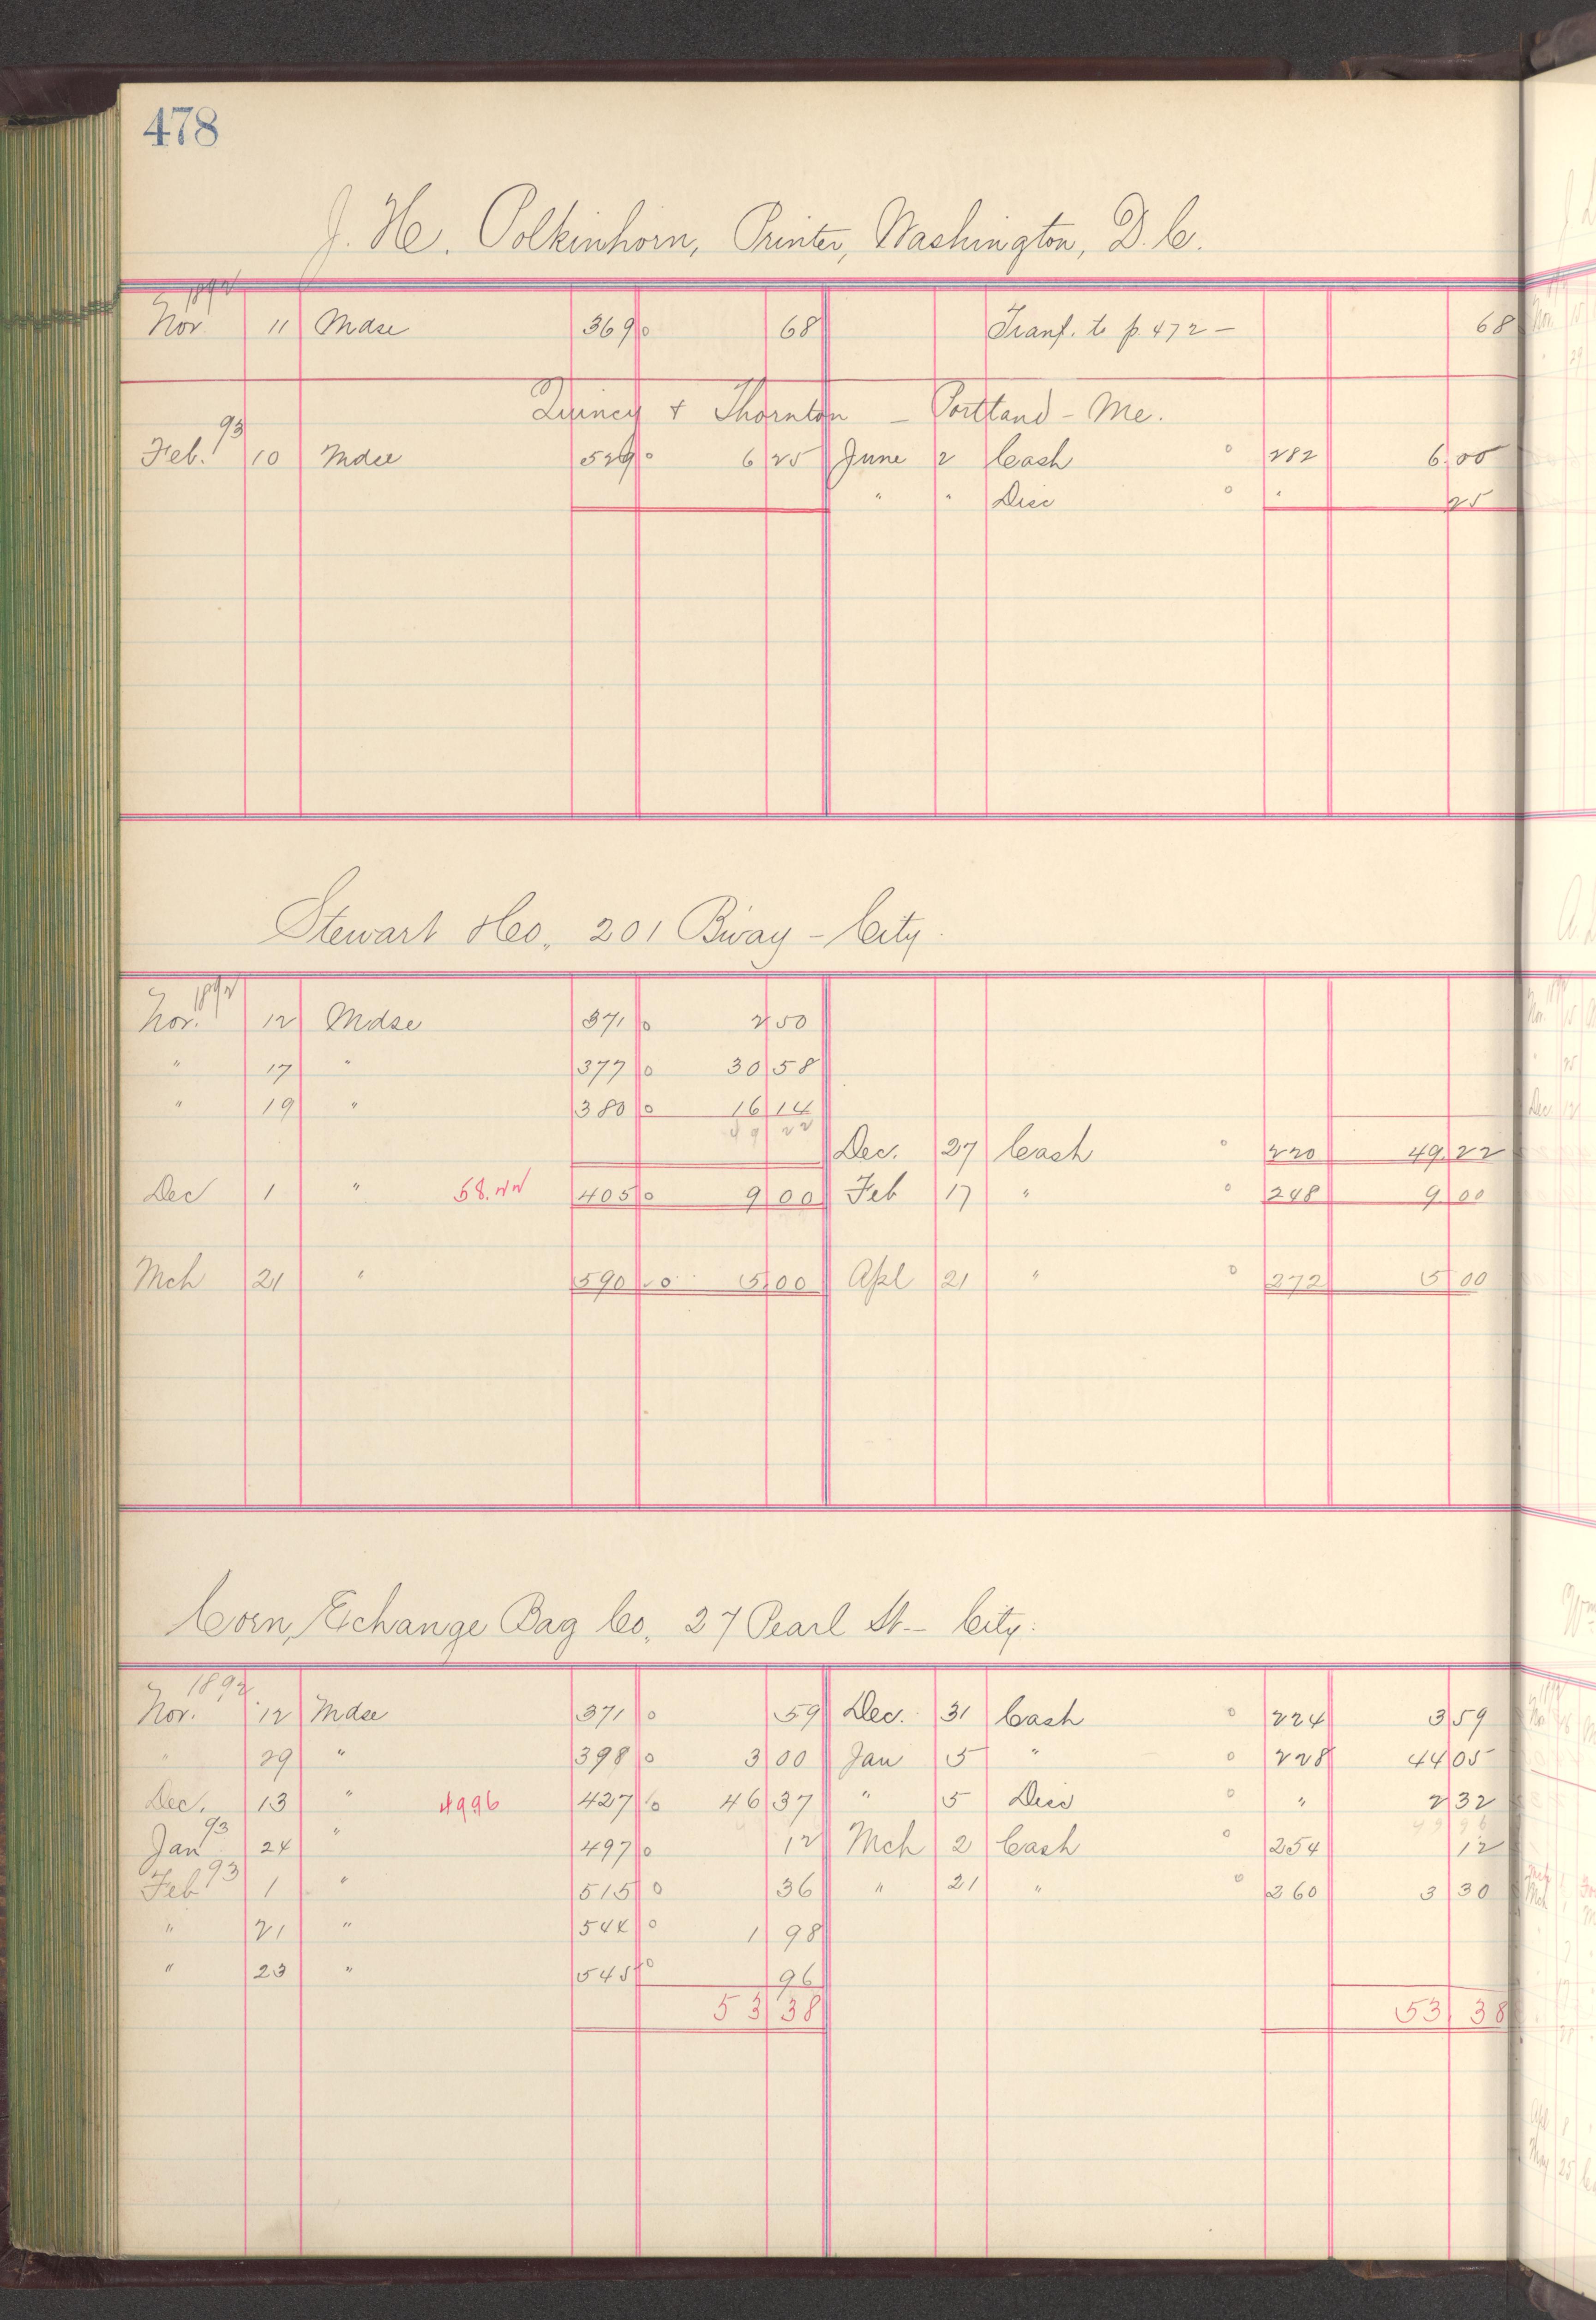 478
J. H. Polkinhorn, Printer, Washington, D.C.
1892
Nov. 11 Mdse 369 0 68 Tranf. to p. 472 — 68
Quincy & Thornton — Portland - Me.
93
Feb. 10 Mdse 529 0 6 25 June 2 Cash 0 282 6.00
" " Disc 0 " 25
Stewart & Co. 201 B'way - City.
1892
Nov. 12 Mdse 371 0 2 50
" 17 " 377 0 30 58
" 19 " 380 0 16 14
49 22
Dec. 27 Cash 0 220 49 22
Dec 1 " 58.22 405 0 9 00 Feb 17 " 0 248 9 00
Mch 21 " 590 0 5 00 Apl 21 " 0 272 5 00
Corn, Exchange Bag Co. 27 Pearl St. - City.
1892
Nov. 12 Mdse 371 0 59 Dec. 31 Cash 0 224 3 59
" 29 " 398 0 3 00 Jan 5 " 0 228 44 05
Dec. 13 " 4996 427 0 46 37 " 5 Disc 0 " 2 32
49 96
Jan 93 24 " 497 0 12 Mch 2 Cash 0 254 12
Feb 93 1 " 515 0 36 " 21 " 0 260 3 30
" 21 " 544 0 1 98
" 23 " 548 0 96
53 38 53 38